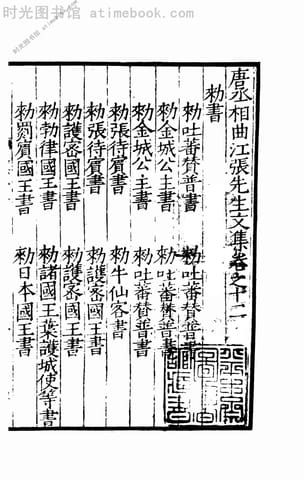 时光图书馆 atimebook.com
唐丞相曲江張先生文集卷之十二
勑書
勑吐蕃賛普書 勑吐蕃賛普書
勑金城公主書 勑吐蕃賛普書
勑金城公主書 勑吐蕃賛普書
勑張待賔書 勑牛仙客書
勑張待賔書 勑護密國王書
勑護密國王書 勑護密國王書
勑勃律國王書 勑諸國王葉護城使等書
勑罽賔國王書 勑日本國王書
时光图书馆 atimebook.com